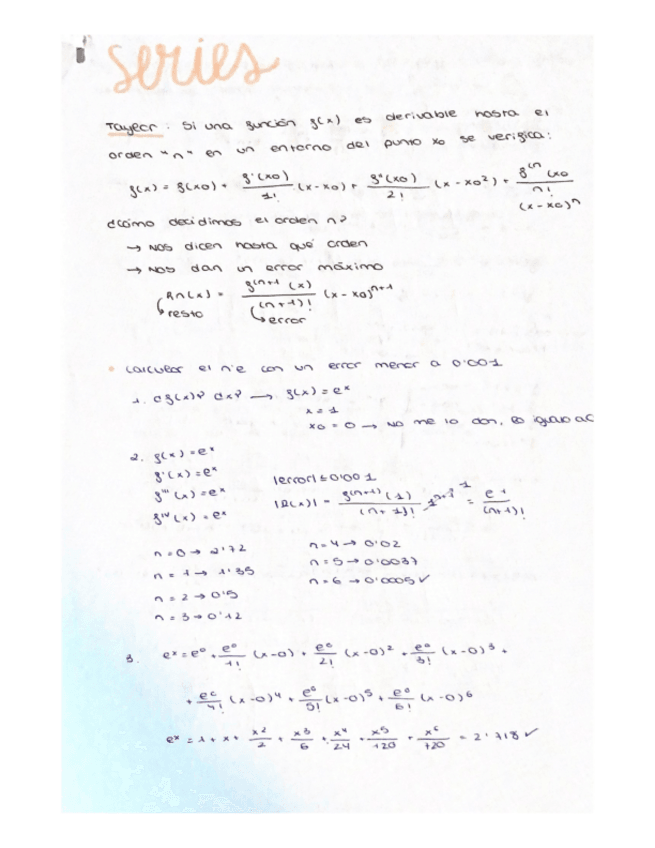 series
Taylor: Si una función f(x) es derivable hasta el
orden "n" en un entorno del punto x0 se verifica:
f(x) = f(x0) + f'(x0)/1! (x-x0) + f''(x0)/2! (x-x0²) + f^(n (x0/n! (x-x0)^n
¿cómo decidimos el orden n?
→ Nos dicen hasta qué orden
→ Nos dan un error máximo
Rn(x) = f^(n+1 (x)/(n+1)! (x-x0)^n+1
resto
error
• Calcular el nº e con un error menor a 0'001
1. ¿f(x)? ¿x? → f(x) = e^x
x = 1
x0 = 0 → No me lo dan, es igual a 0
2. f(x) = e^x
f'(x) = e^x
f'''(x) = e^x
f^IV(x) = e^x
|error| ≤ 0'001
|R(x)| = f^(n+1)(1)/(n+1)! 1^n+1 = e^1/(n+1)!
n=0 → 2'72
n=1 → 1'35
n=2 → 0'5
n=3 → 0'12
n=4 → 0'02
n=5 → 0'0037
n=6 → 0'0005 ✓
3. e^x = e^0 + e^0/1! (x-0) + e^0/2! (x-0)² + e^0/3! (x-0)³ +
+ e^0/4! (x-0)^4 + e^0/5! (x-0)^5 + e^0/6! (x-0)^6
e^x = 1 + x + x²/2 + x³/6 + x^4/24 + x^5/120 + x^6/720 = 2'718 ✓